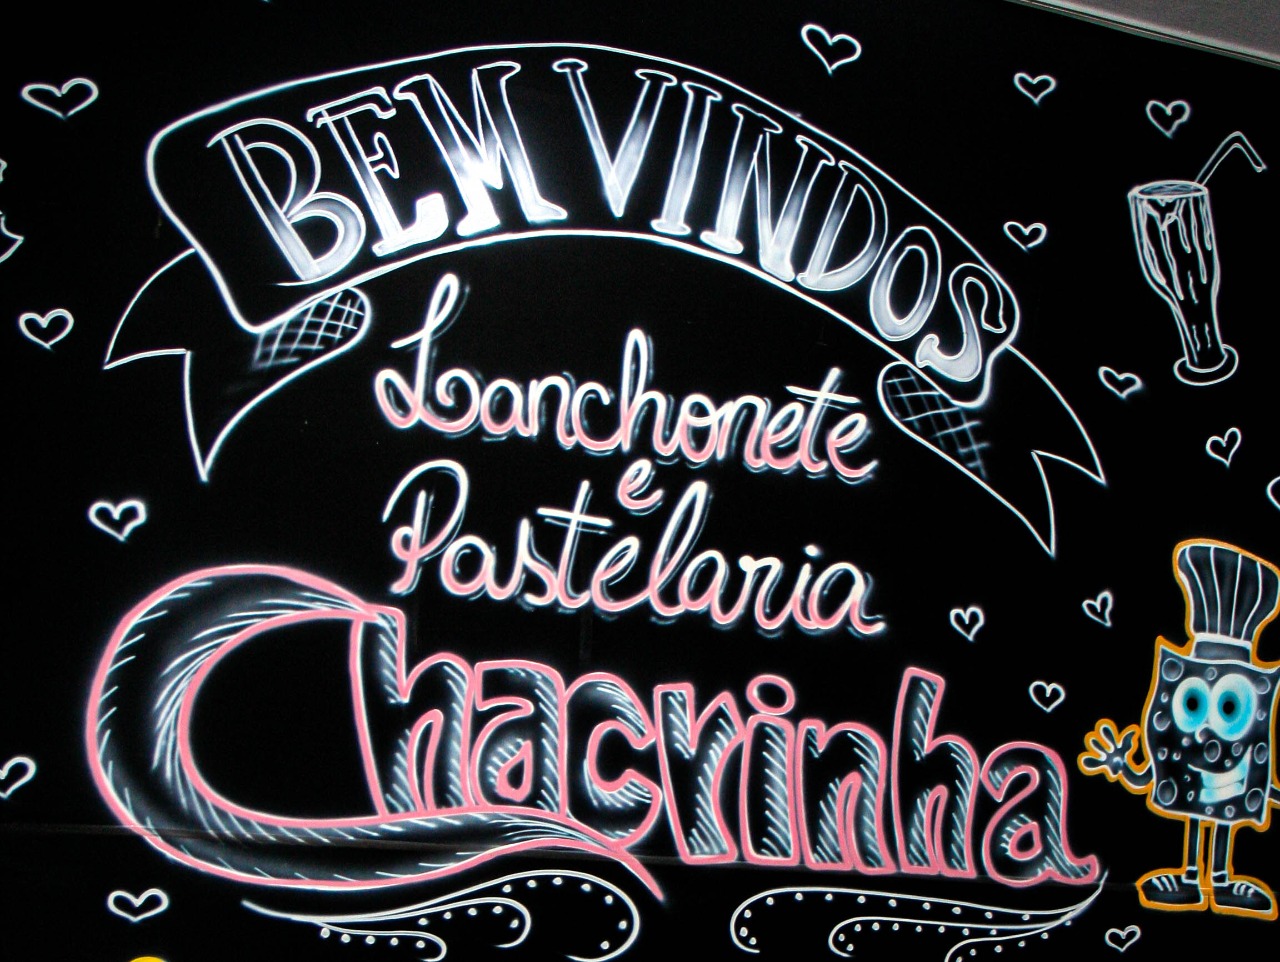 BEM VINDOS
Lanchonete
e
Pastelaria
Chacrinha